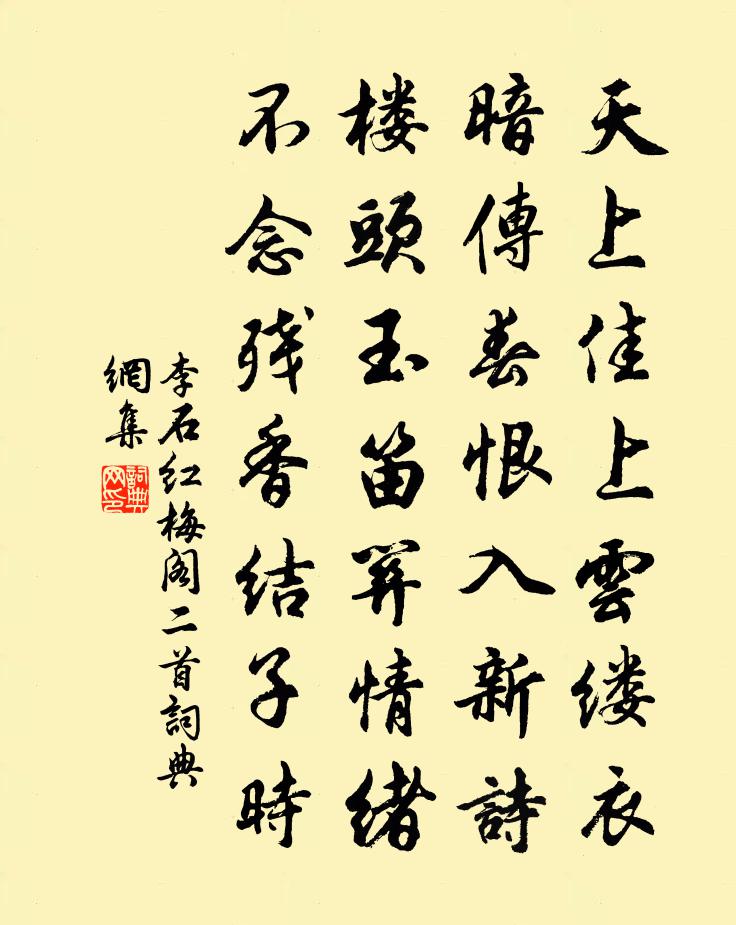 天上佳上雲缕衣
暗傳春恨入新詩
楼頭玉笛情緒
不念残香结子時
李石红梅阁二首詞典
網集
詞典
网印